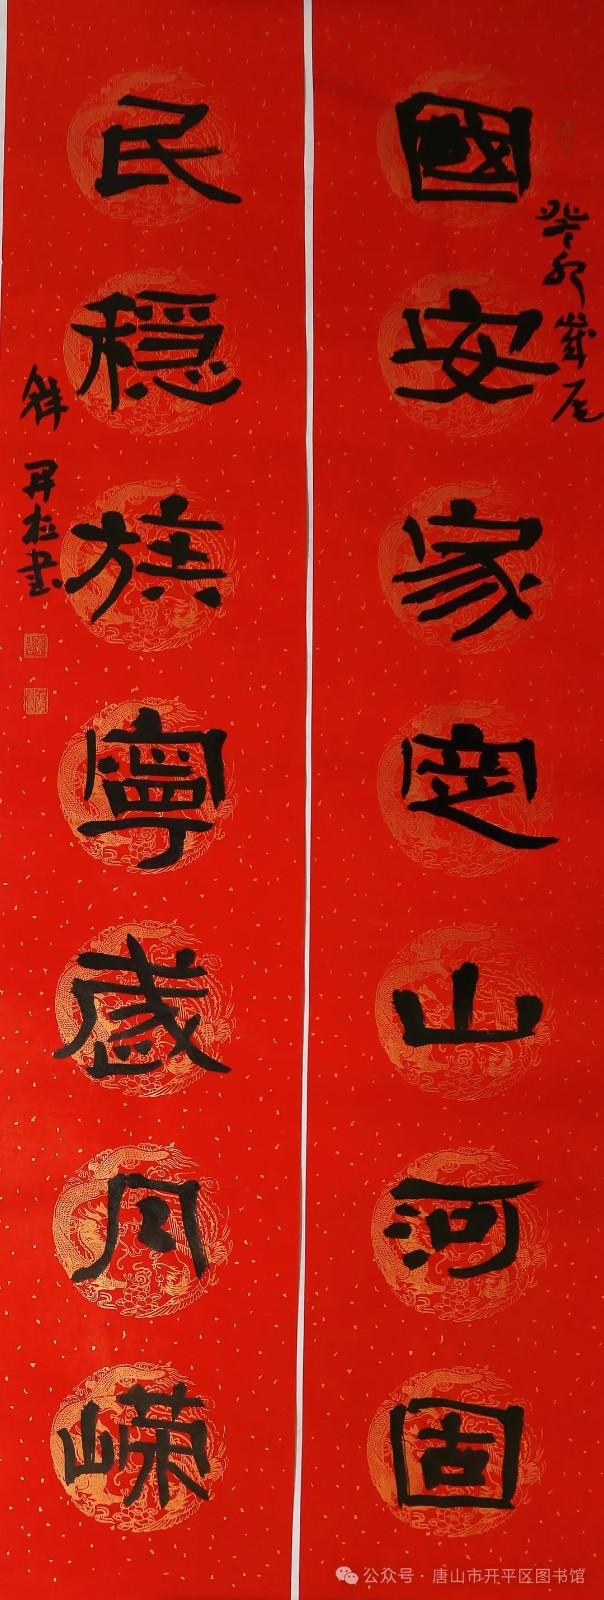 癸卯歲尾
國安家定山河固
民穩族寧歲月嶸
書
公众号 · 唐山市开平区图书馆